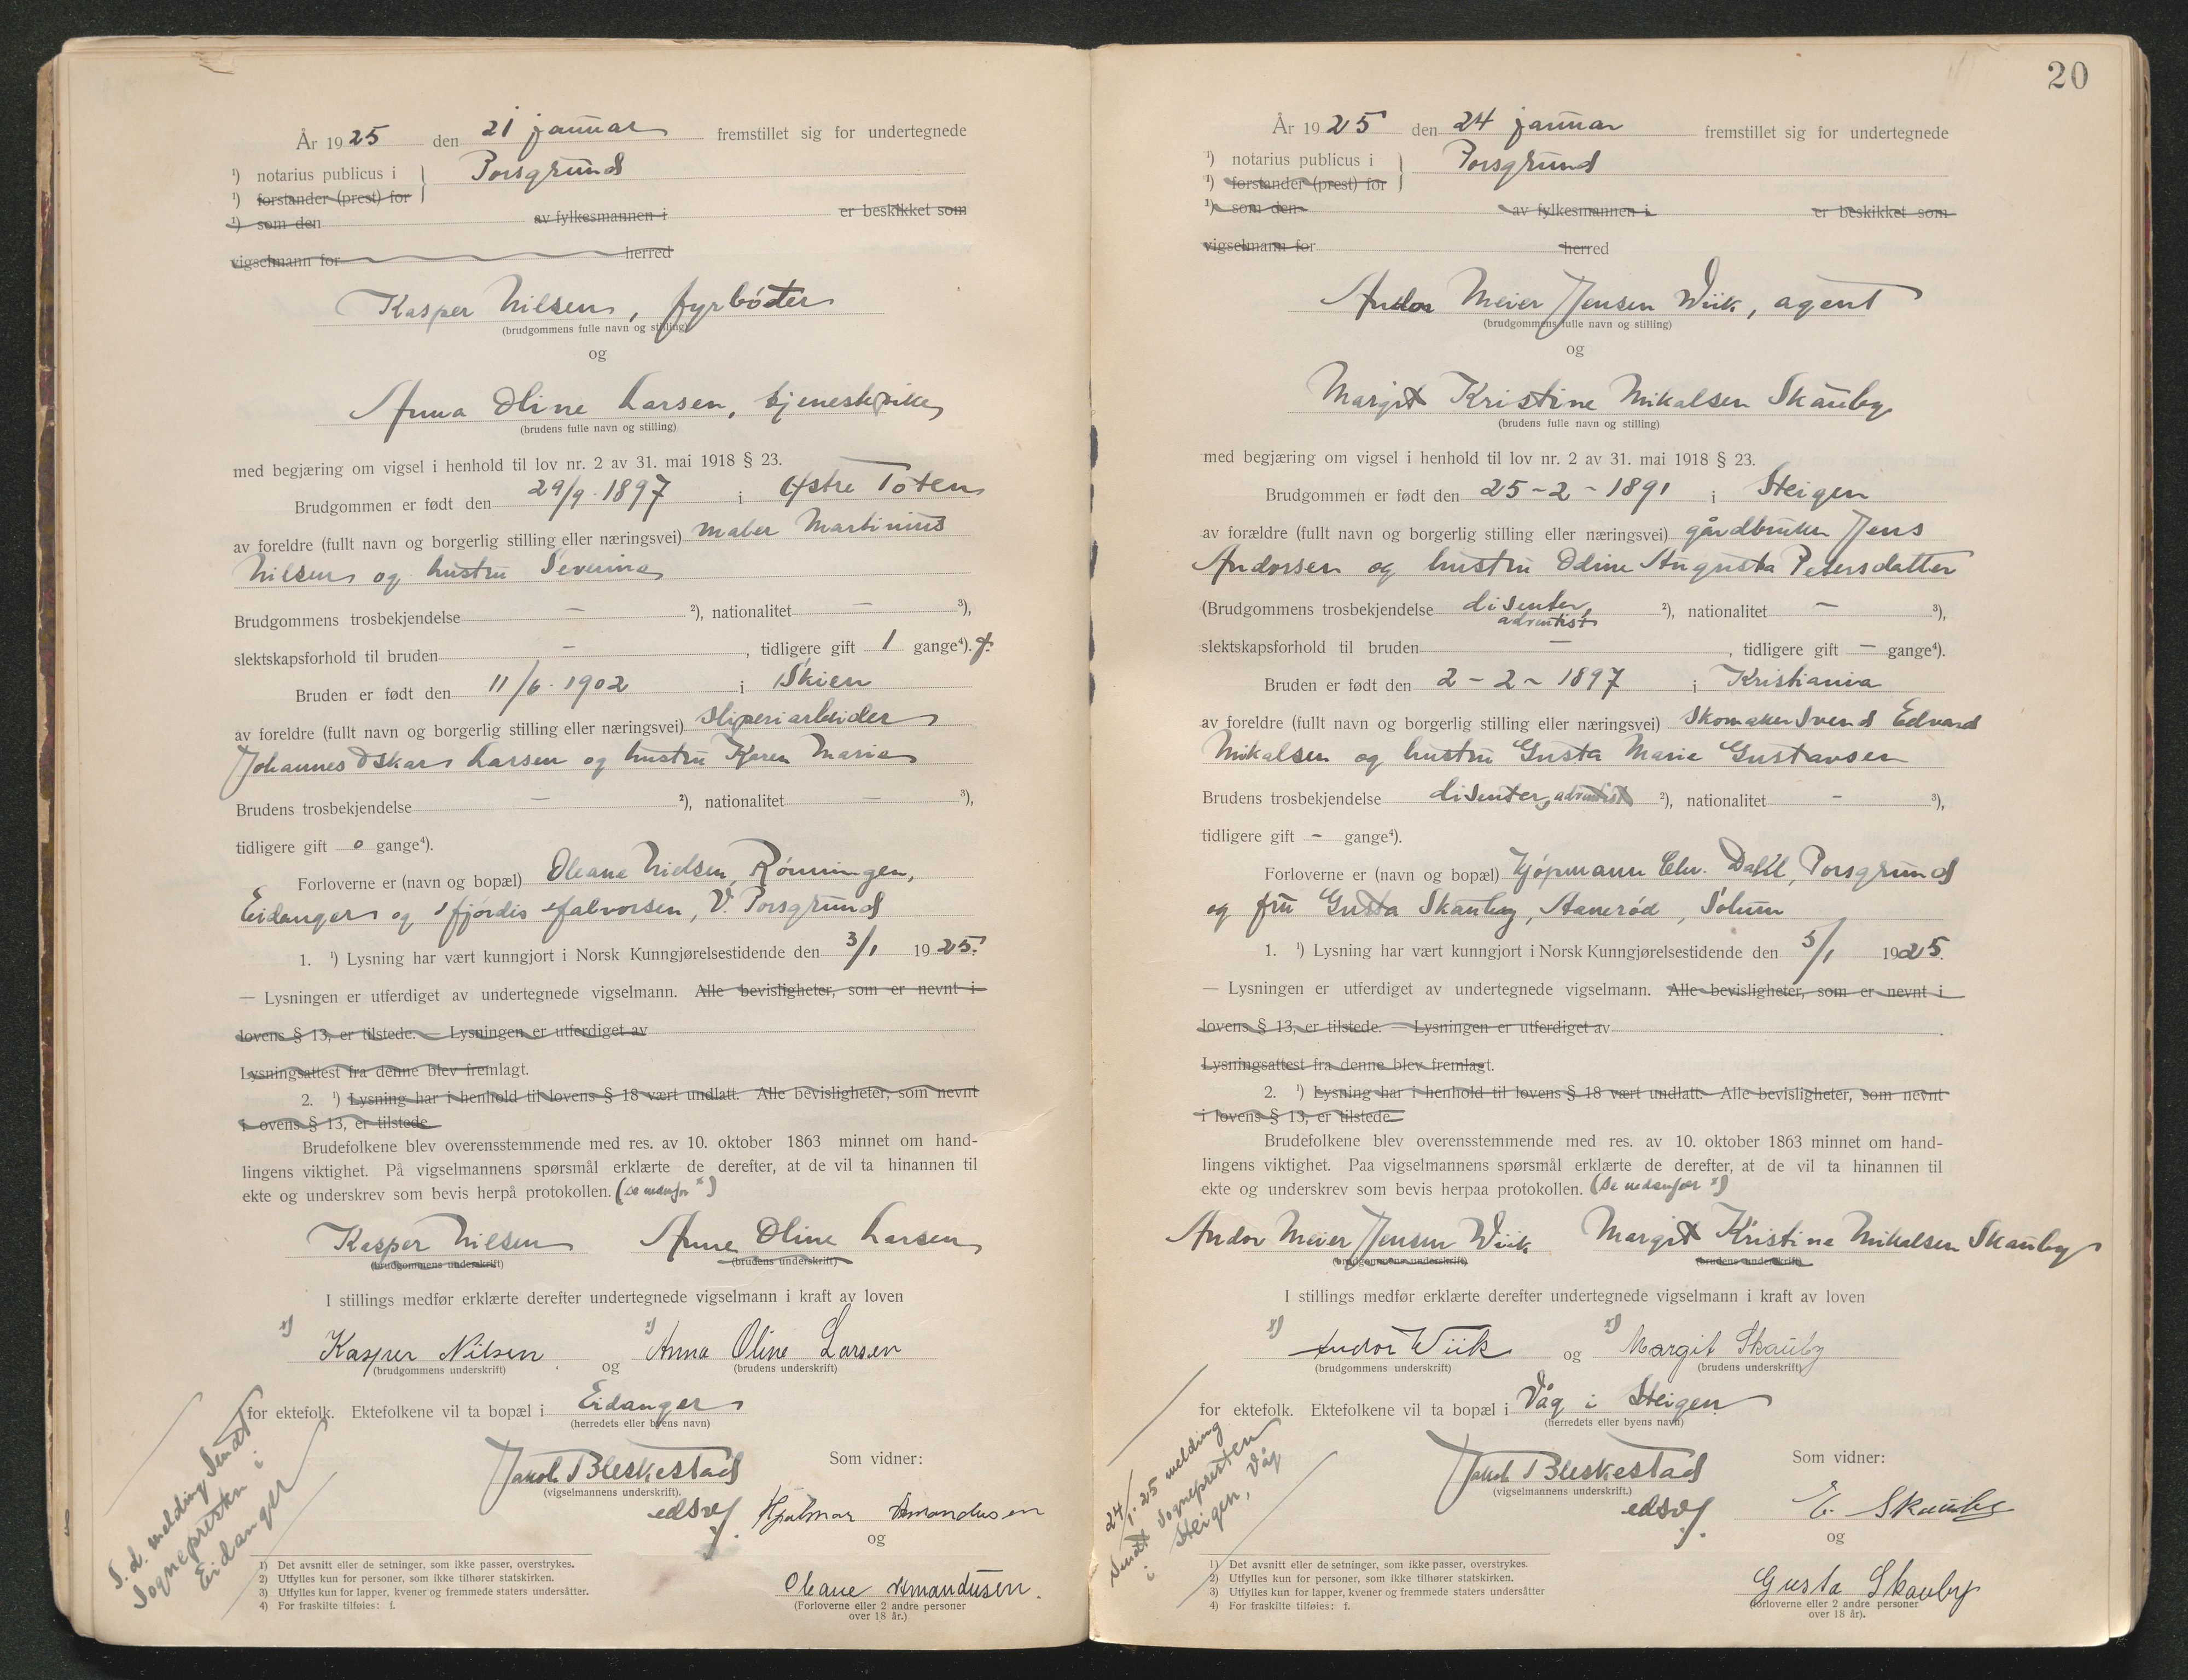 År 1925 den 21 januar fremstillet sig for undertegnede
¹) notarius publicus i } Porsgrund
¹) forstander (prest) for
¹) som den av fylkesmannen i er beskikket som
vigselmann for herred
Kasper Nilsen, fyrbøter
(brudgommens fulle navn og stilling)
og
Anna Oline Larsen, tjenestepike
(brudens fulle navn og stilling)
med begjæring om vigsel i henhold til lov nr. 2 av 31. mai 1918 § 23.
Brudgommen er født den 29/9. 1897 i Østre Toten
av foreldre (fullt navn og borgerlig stilling eller næringsvei) maler Martinius
Nilsen og hustru Severine
Brudgommens trosbekjendelse — ²), nationalitet — ³),
slektskapsforhold til bruden — , tidligere gift 1 gange⁴). f.
Bruden er født den 11/6. 1902 i Skien
av foreldre (fullt navn og borgerlig stilling eller næringsvei) sliperiarbeider
Johannes Oskar Larsen og hustru Karen Marie
Brudens trosbekjendelse — ²), nationalitet — ³),
tidligere gift 0 gange⁴).
Forloverne er (navn og bopæl) Oleane Nielsen, Rønningen,
Eidanger og Hjørdis Halvorsen, V. Porsgrund
1. ¹) Lysning har vært kunngjort i Norsk Kunngjørelsestidende den 3/1 1925.
— Lysningen er utferdiget av undertegnede vigselmann. Alle bevisligheter, som er nevnt i
lovens § 13, er tilstede. — Lysningen er utferdiget av
Lysningsattest fra denne blev fremlagt.
2. ¹) Lysning har i henhold til lovens § 18 vært undlatt. Alle bevisligheter, som nevnt
i lovens § 13, er tilstede.
Brudefolkene blev overensstemmende med res. av 10. oktober 1863 minnet om hand-
lingens viktighet. På vigselmannens spørsmål erklærte de derefter, at de vil ta hinannen til
ekte og underskrev som bevis herpå protokollen. (se nedenfor x)
Kasper Nilsen Anna Oline Larsen
(brudgommens underskrift) (brudens underskrift)
I stillings medfør erklærte derefter undertegnede vigselmann i kraft av loven
x) Kasper Nilsen og x) Anna Oline Larsen
(brudgommens underskrift) (brudens underskrift)
for ektefolk. Ektefolkene vil ta bopæl i Eidanger
(herredets eller byens navn)
Jakob Bleskestad Som vidner:
(vigselmannens underskrift).
edsv. f. Hjalmar Amandusen
og
Oleane Amandusen.
(Forloverne eller 2 andre personer
over 18 år.)
S. d. melding sendt
sognepresten i
Eidanger
1) Det avsnitt eller de setninger, som ikke passer, overstrykes.
2) Utfylles kun for personer, som ikke tilhører statskirken.
3) Utfylles kun for lapper, kvener og fremmede staters undersåtter.
4) For fraskilte tilføies: f.
20
År 1925 den 24 januar fremstillet sig for undertegnede
¹) notarius publicus i } Porsgrund
¹) forstander (prest) for
¹) som den av fylkesmannen i er beskikket som
vigselmann for herred
Andor Meier Jensen Wiik, agent
(brudgommens fulle navn og stilling)
og
Margit Kristine Mikalsen Skauby
(brudens fulle navn og stilling)
med begjæring om vigsel i henhold til lov nr. 2 av 31. mai 1918 § 23.
Brudgommen er født den 25-2-1891 i Steigen
av forældre (fullt navn og borgerlig stilling eller næringsvei) gårdbruker Jens
Andorsen og hustru Odine Augusta Petersdatter
(Brudgommens trosbekjendelse disenter, adventist ²), nationalitet — ³),
slektskapsforhold til bruden — , tidligere gift — gange⁴).
Bruden er født den 2-2-1897 i Kristiania
av foreldre (fullt navn og borgerlig stilling eller næringsvei) Skomaker Svend Edvard
Mikalsen og hustru Gusta Marie Gustavsen
Brudens trosbekjendelse disenter, adventist ²), nationalitet - ³),
tidligere gift - gange⁴).
Forloverne er (navn og bopæl) Kjøpmann Chr. Dahl, Porsgrund
og fru Gusta Skauby, Stanerød, Solum
1. ¹) Lysning har vært kunngjort i Norsk Kunngjørelsestidende den 5/1 1925.
— Lysningen er utferdiget av undertegnede vigselmann. Alle bevisligheter, som er nevnt i
lovens § 13, er tilstede. — Lysningen er utferdiget av
Lysningsattest fra denne blev fremlagt.
2. ¹) Lysning har i henhold til lovens § 18 vært undlatt. Alle bevisligheter, som nevnt
i lovens § 13, er tilstede
Brudefolkene blev overensstemmende med res. av 10. oktober 1863 minnet om hand-
lingens viktighet. Paa vigselmannens spørsmål erklærte de derefter, at de vil ta hinannen til
ekte og underskrev som bevis herpaa protokollen. (Se nedenfor x)
Andor Meier Jensen Wiik Margit Kristine Mikalsen Skauby
(brudgommens underskrift) (brudens underskrift)
I stillings medfør erklærte derefter undertegnede vigselmann i kraft av loven
x) Andor Wiik og x) Margit Skauby
(brudgommens underskrift) (brudens underskrift)
for ektefolk. Ektefolkene vil ta bopæl i Våg i Steigen
(herredets eller byens navn)
Jakob Bleskestad Som vidner:
(vigselmannens underskrift.)
edsv. f. E. Skauby
og
Gusta Skauby
(forloverne eller 2 andre personer
over 18 år).
24/1. 25 melding
sendt Sognepresten
i Steigen, Våg
1) Det avsnitt eller de setninger, som ikke passer, overstrykes.
2) Utfylles kun for personer, som ikke tilhører statskirken.
3) Utfylles kun for lapper, kvener og fremmede staters undersåtter
4) For fraskilte tilføies: f.